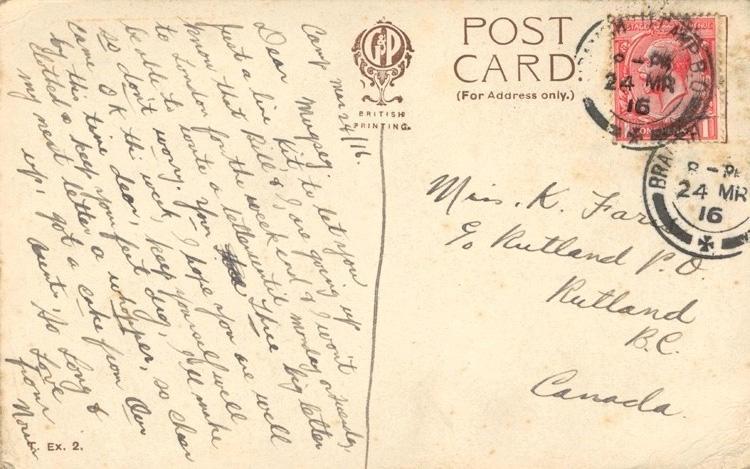 POST
CARD.
(For Address only.)
BRITISH
PRINTING.
8 - PM
24 MR
16
8 - PM
24 MR
16
Camp Mar 24/16.
Dear
Just a line Kit to let you
know that Bill & I are going up
to London for the week end & I won't
be able to write a letter until monday or tuesday,
so don't worry. Your big letter
came OK this week, I hope you are well
by this time dear, keep yourself well
& keep your feet dry, I'll make
my next letter a whopper, so cheer
up; got a cake from
Aunt. So Long &
Love
from
Miss. K. Farr
c/o Rutland P.O.
Rutland
B.C.
Canada.
Ex. 2.